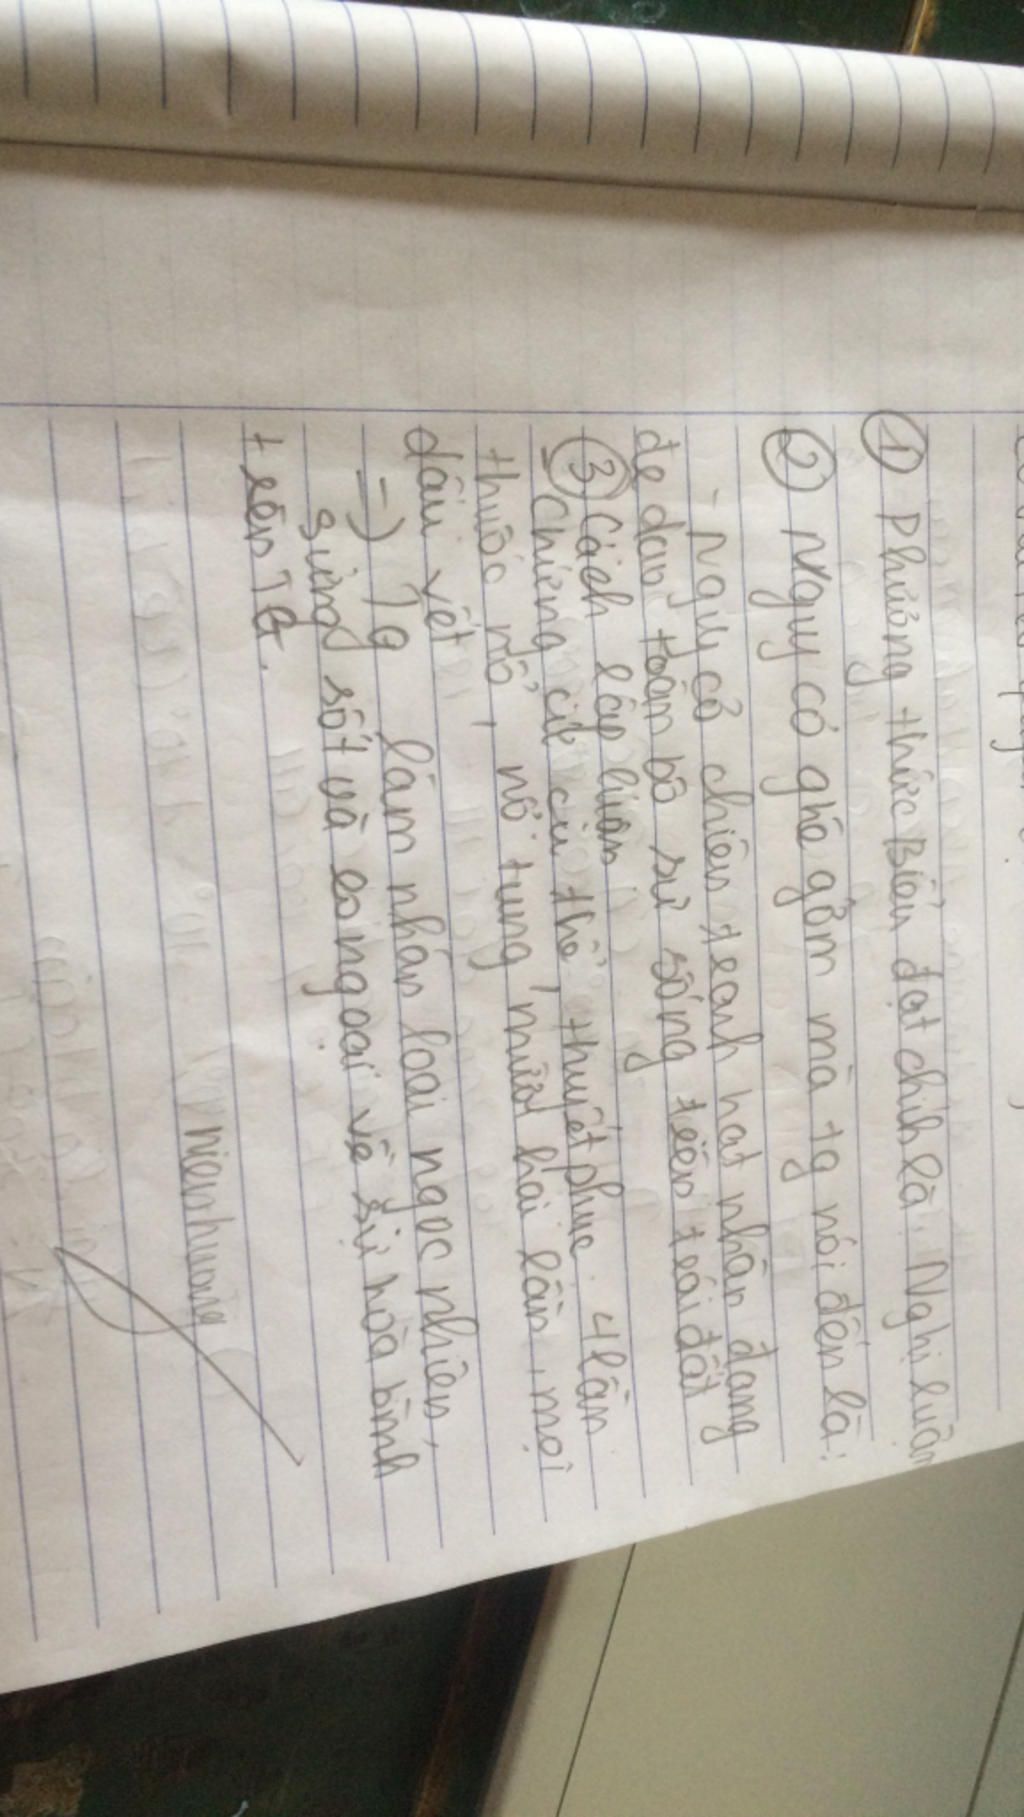 ① Phương thức Biểu đạt chính là: Nghị luận
② Nguy cơ ghê gớm mà tg nói đến là:
- Nguy cơ chiến tranh hạt nhân đang
đe dọa toàn bộ sự sống trên trái đất
③ Cách lập luận
- Chứng cứ cụ thể, thuyết phục: 4 tấn
thuốc nổ, nổ tung mười hai lần, mọi
dấu vết
=) Tg làm nhân loại ngạc nhiên,
sửng sốt và
trên TG.